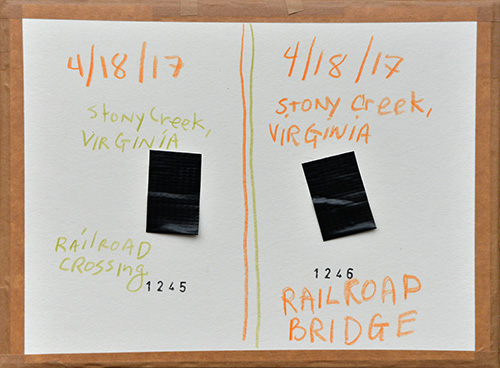 4/18/17
Stony Creek,
VIRGINIA
RAILROAD
CROSSing
1245
4/18/17
STONY CREEK,
VIRGINIA
1246
RAILROAD
BRIDGE